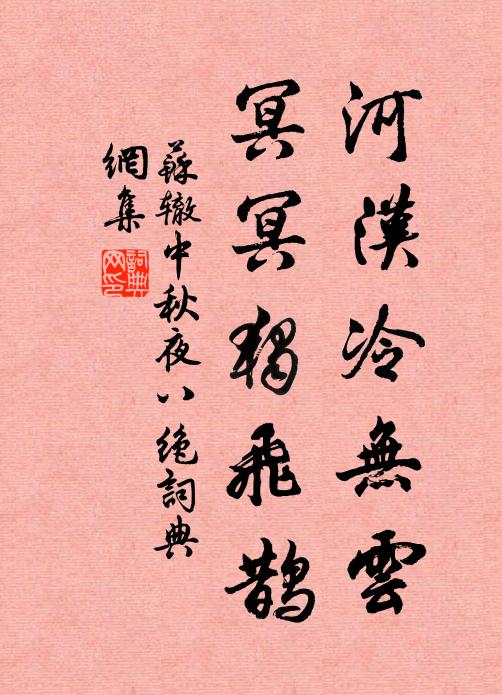 河漢冷無雲
冥冥獨飛鵲
蘇轍中秋夜八絶詞典
網集
詞典网印